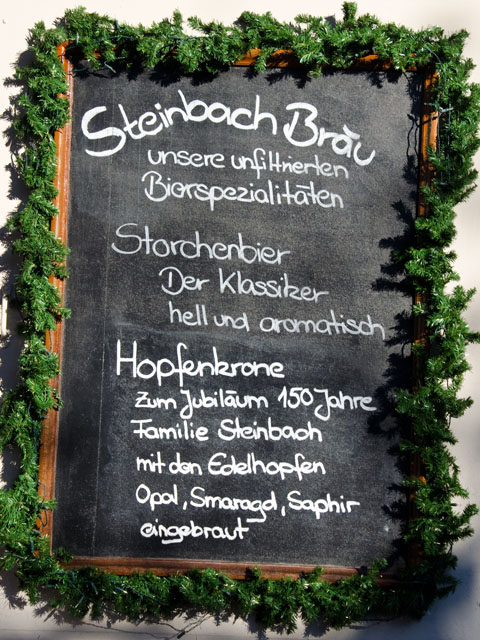 Steinbach Bräu
unsere unfiltrierten
Bierspezialitäten
Storchenbier
Der Klassiker
hell und aromatisch
Hopfenkrone
Zum Jubiläum 150 Jahre
Familie Steinbach
mit den Edelhopfen
Opal, Smaragd, Saphir
eingebraut